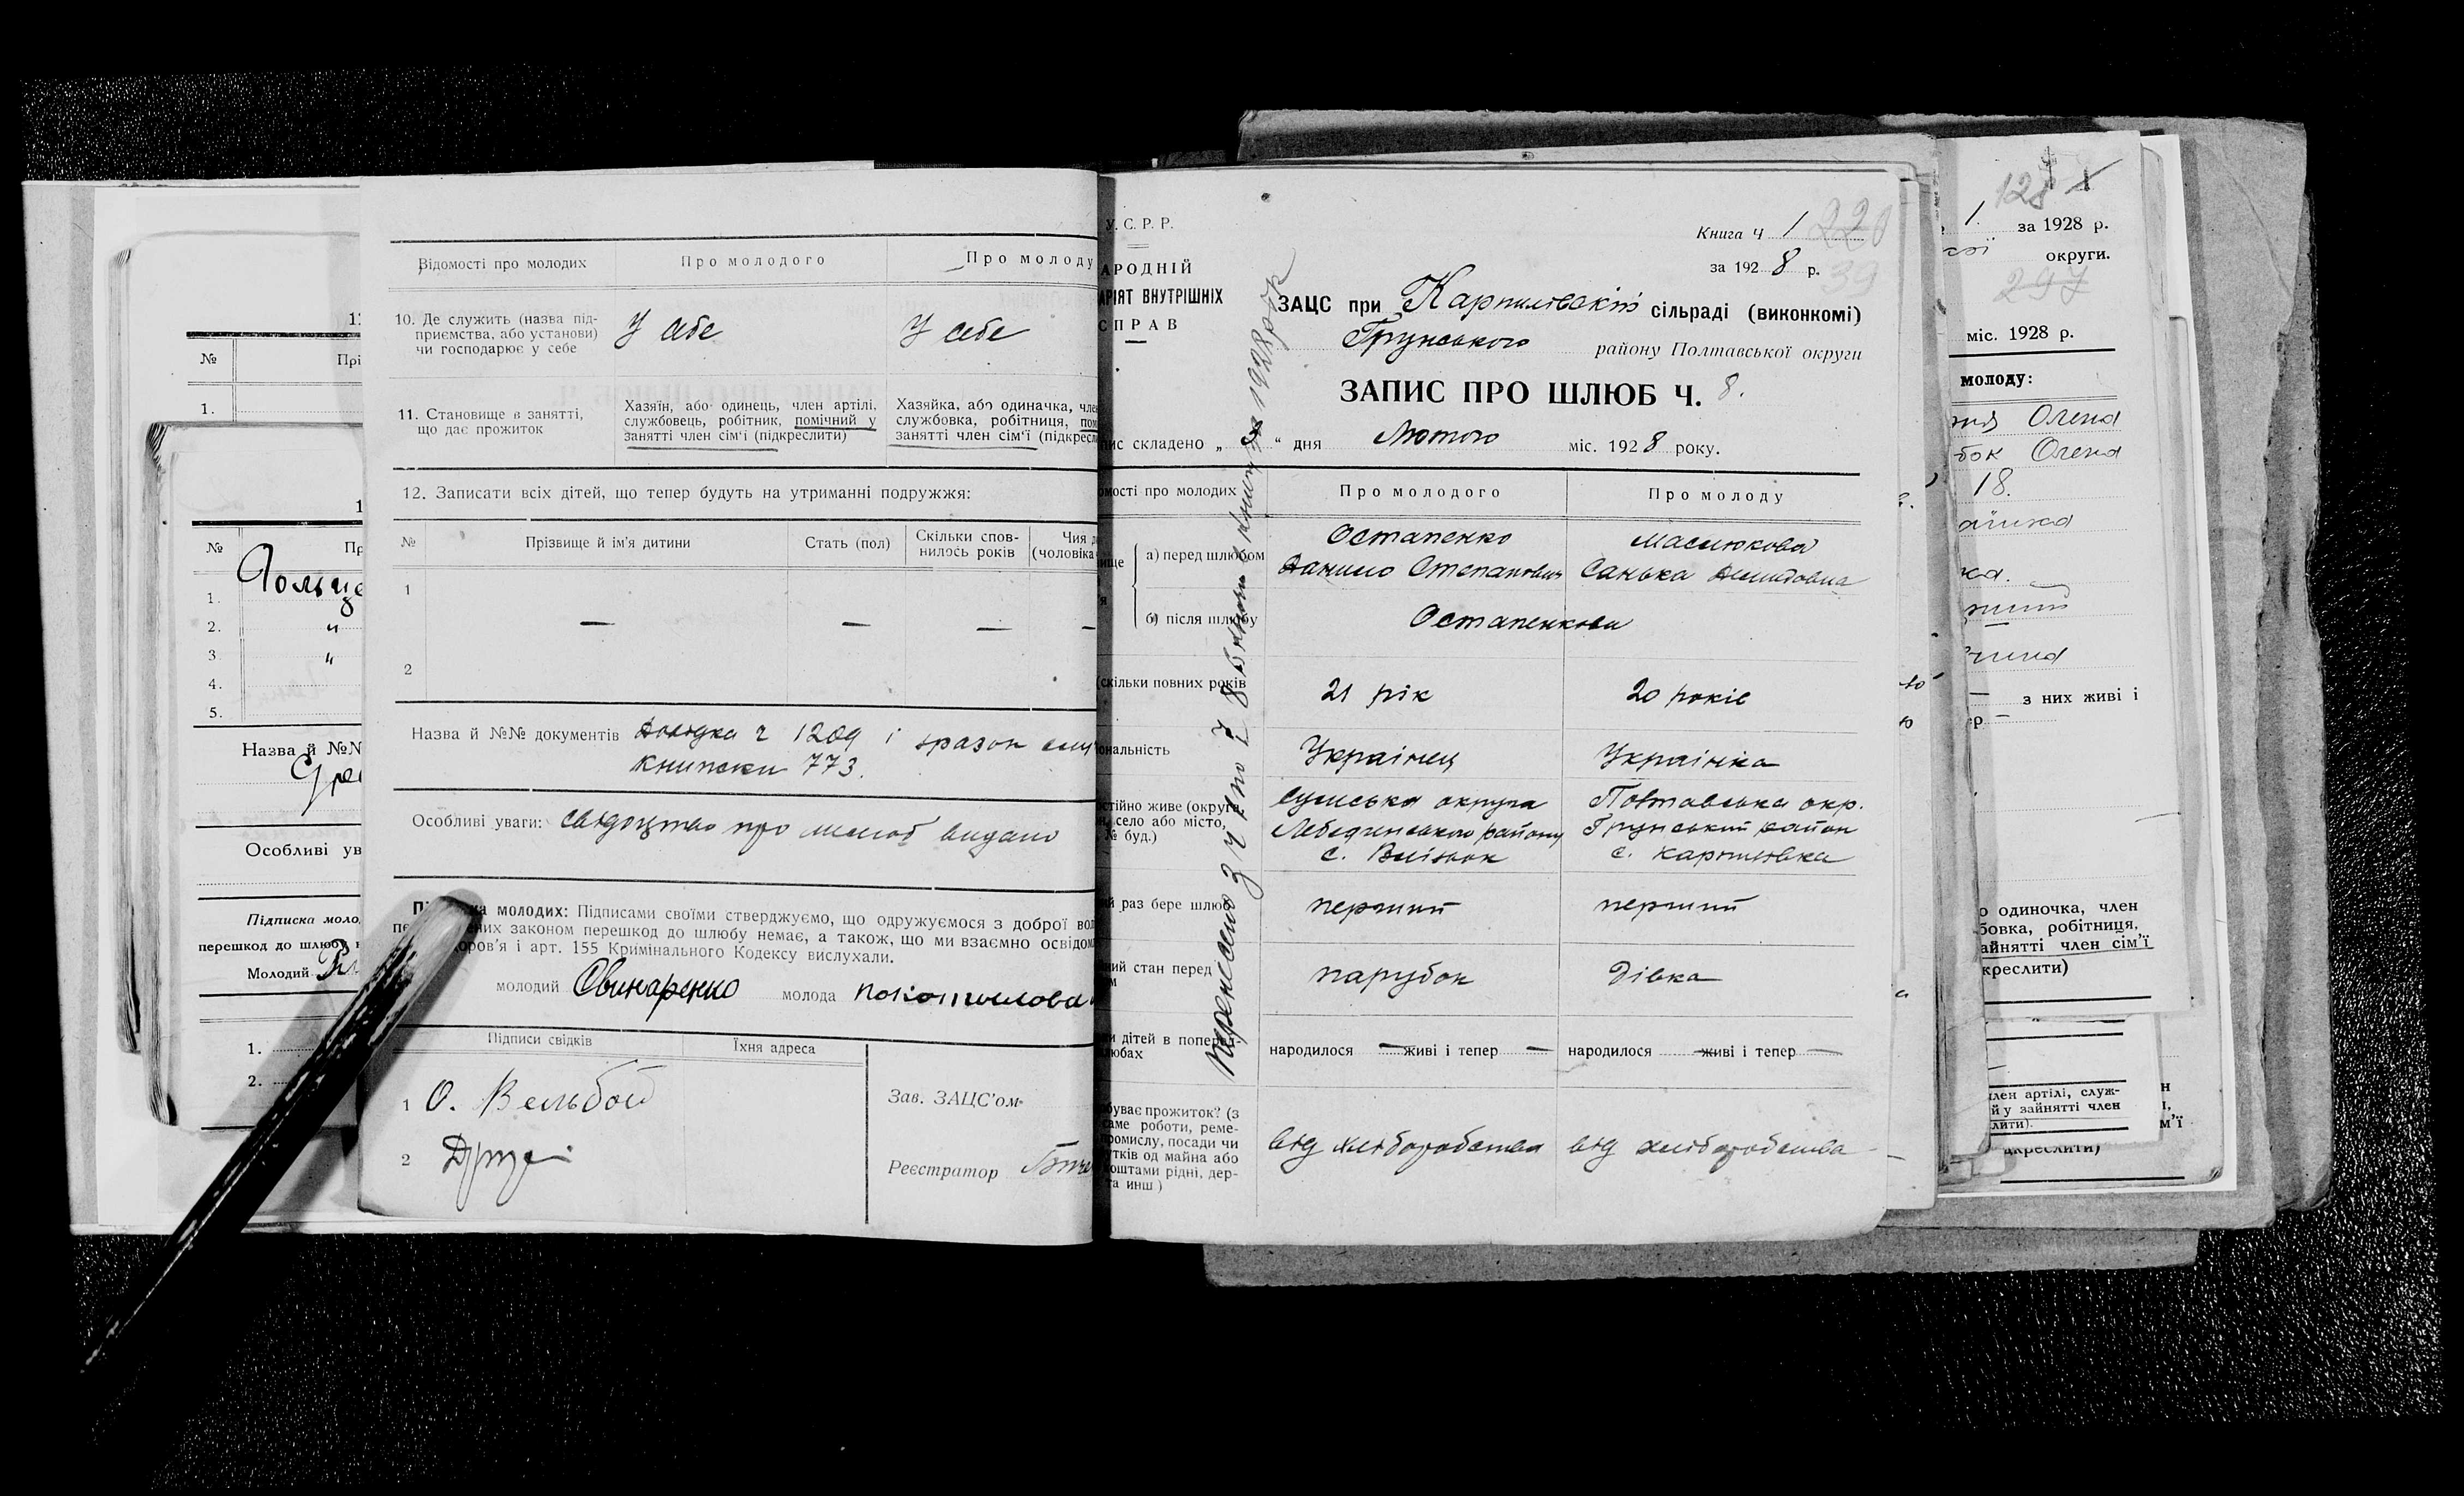 №
Прі
1.
№
Пр
1.
2. "
3 "
4.
5.
Назва й №№
Особливі ув
Підписка моло
перешкод до шлюбу н
Молодий
1.
2.
Відомості про молодих
Про молодого
Про молоду
10. Де служить (назва під-
приємства, або установи)
чи господарює у себе
У себе
У себе
11. Становище в занятті,
що дає прожиток
Хазяїн, або одинець, член артілі,
службовець, робітник, помічний у
занятті член сім'ї (підкреслити)
Хазяйка, або одиначка, чле
службовка, робітниця, пом
занятті член сім'ї (підкресл
12. Записати всіх дітей, що тепер будуть на утриманні подружжя:
№
Прізвище й ім'я дитини
Стать (пол)
Скільки спов-
нилось років
Чия д
(чоловіка
1
— — — —
2
Назва й №№ документів 1209 і
книжки 773.
Особливі уваги: свідоцтво про шлюб видано
молодих: Підписами своїми стверджуємо, що одружуємося з доброї вол
них законом перешкод до шлюбу немає, а також, що ми взаємно освідом
доров'я і арт. 155 Кримінального Кодексу вислухали.
молодий Свинаренко молода
Підписи свідків
Їхня адреса
1 О.
2
Зав. ЗАЦС'ом
Реєстратор
У.С.Р.Р.
АРОДНІЙ
АРІЯТ ВНУТРІШНІХ
СПРАВ
Книга ч 1
220
за 1928 р.
39
ЗАЦС при Карпилівскій сільраді (виконкомі)
Грунського району Полтавської округи
ЗАПИС ПРО ШЛЮБ Ч. 8.
ис складено „ “ дня Лютого міс. 1928 року.
Перенесено з
1928 рік
омості про молодих
Про молодого
Про молоду
ище
а) перед шлюбом
Остапенко
Данило Степанович
Маслюкова
Санька
б) після шлюбу
Остапенкови
скільки повних років
21 рік
20 років
ональність
Українец
Українка
стійно живе (округа
село або місто,
№ буд.)
Сумська округа
Лебединського району
с.
Полтавська окр.
Грунський район
с. Карпилівка
ий раз бере шлюб
перший
перший
ний стан перед
м
парубок
дівка
и дітей в поперед
любах
народилося — живі і тепер —
народилося — живі і тепер —
буває прожиток? (з
саме роботи, реме-
промислу, посади чи
утків од майна або
оштами рідні, дер-
та инш.)
від хліборобства
від хліборобства
128
1. за 1928 р.
округи.
297
міс. 1928 р.
молоду:
Олена
Олена
18.
з них живі і
о одиночка, член
бовка, робітниця,
айнятті член сім'ї
креслити)
член артілі, служ-
й у зайнятті член
лити).
м'ї
дкреслити)